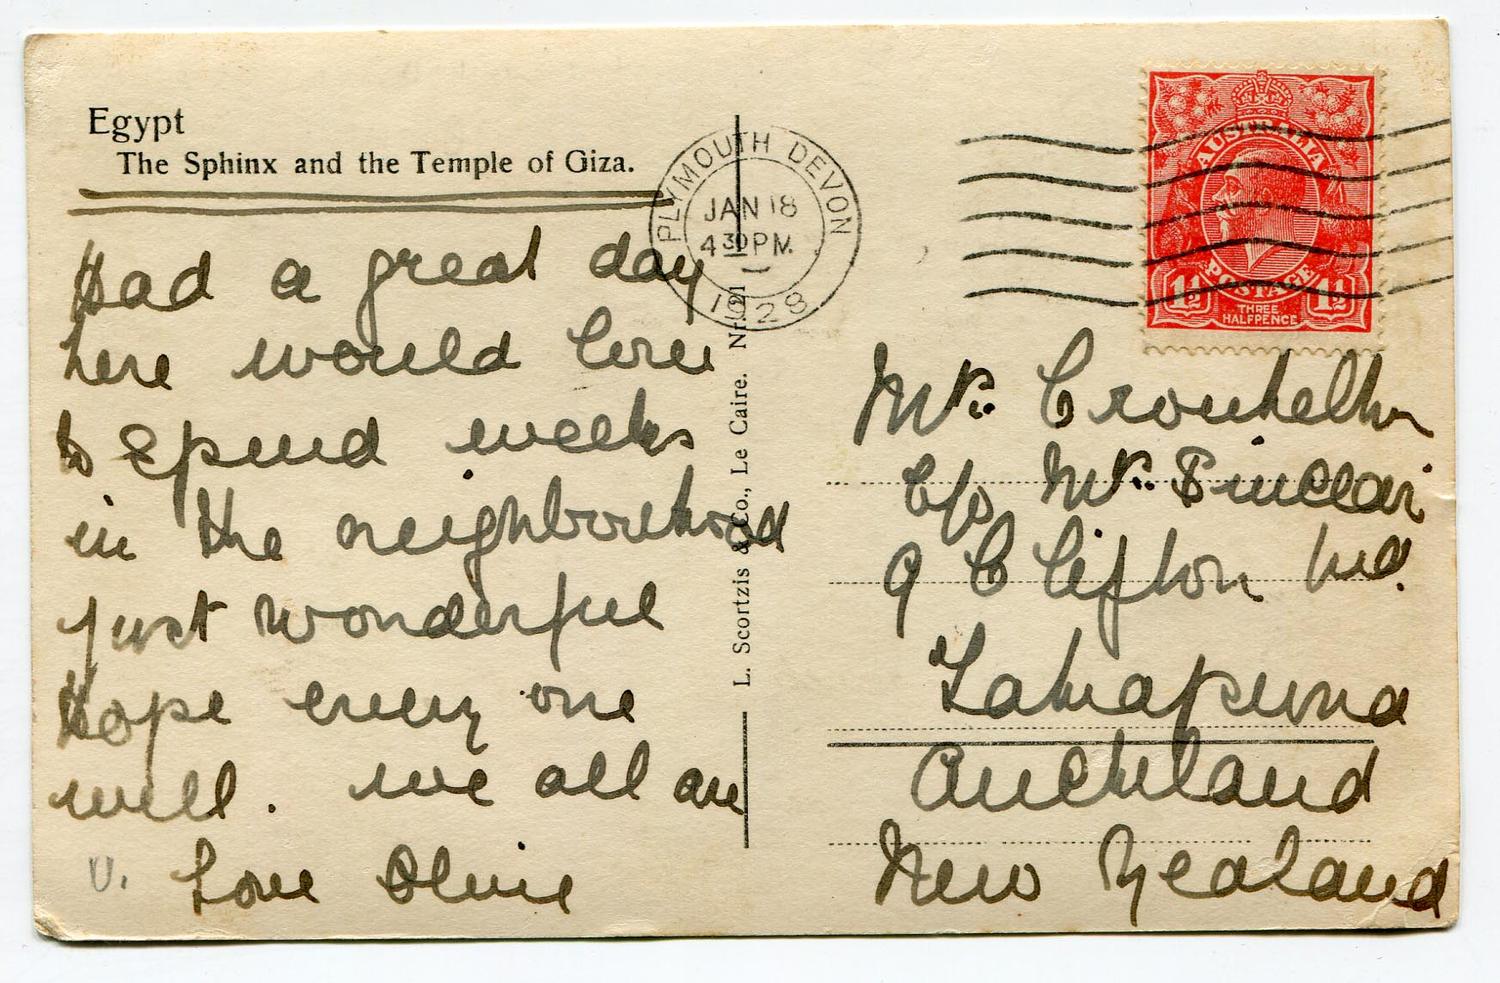 Egypt
The Sphinx and the Temple of Giza.
Had a great day
here would love
to spend weeks
in the neighbourhood
just wonderful
Hope every one
well. we all are
Love Olive
U.
L. Scortzis & Co., Le Caire. Nr. 21
PLYMOUTH DEVON
JAN 18
4 30 PM
1928
AUSTRALIA
POSTAGE
1½ 1½
THREE
HALFPENCE
Mr.
C/o Mr. Sinclair
9 Clifton Rd.
Takapuna
Auckland
New Zealand